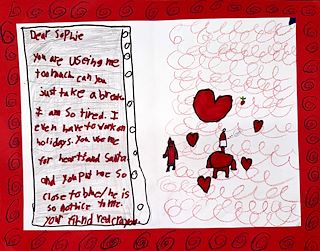 Dear Sophie
you are useing me
toomuch can you
Just take a break
I am so tired. I
even have to work on
holidays. You use me
for heart and Santa.
and you put me so
close to blue/he is
so not nice to me.
your friend red crayon